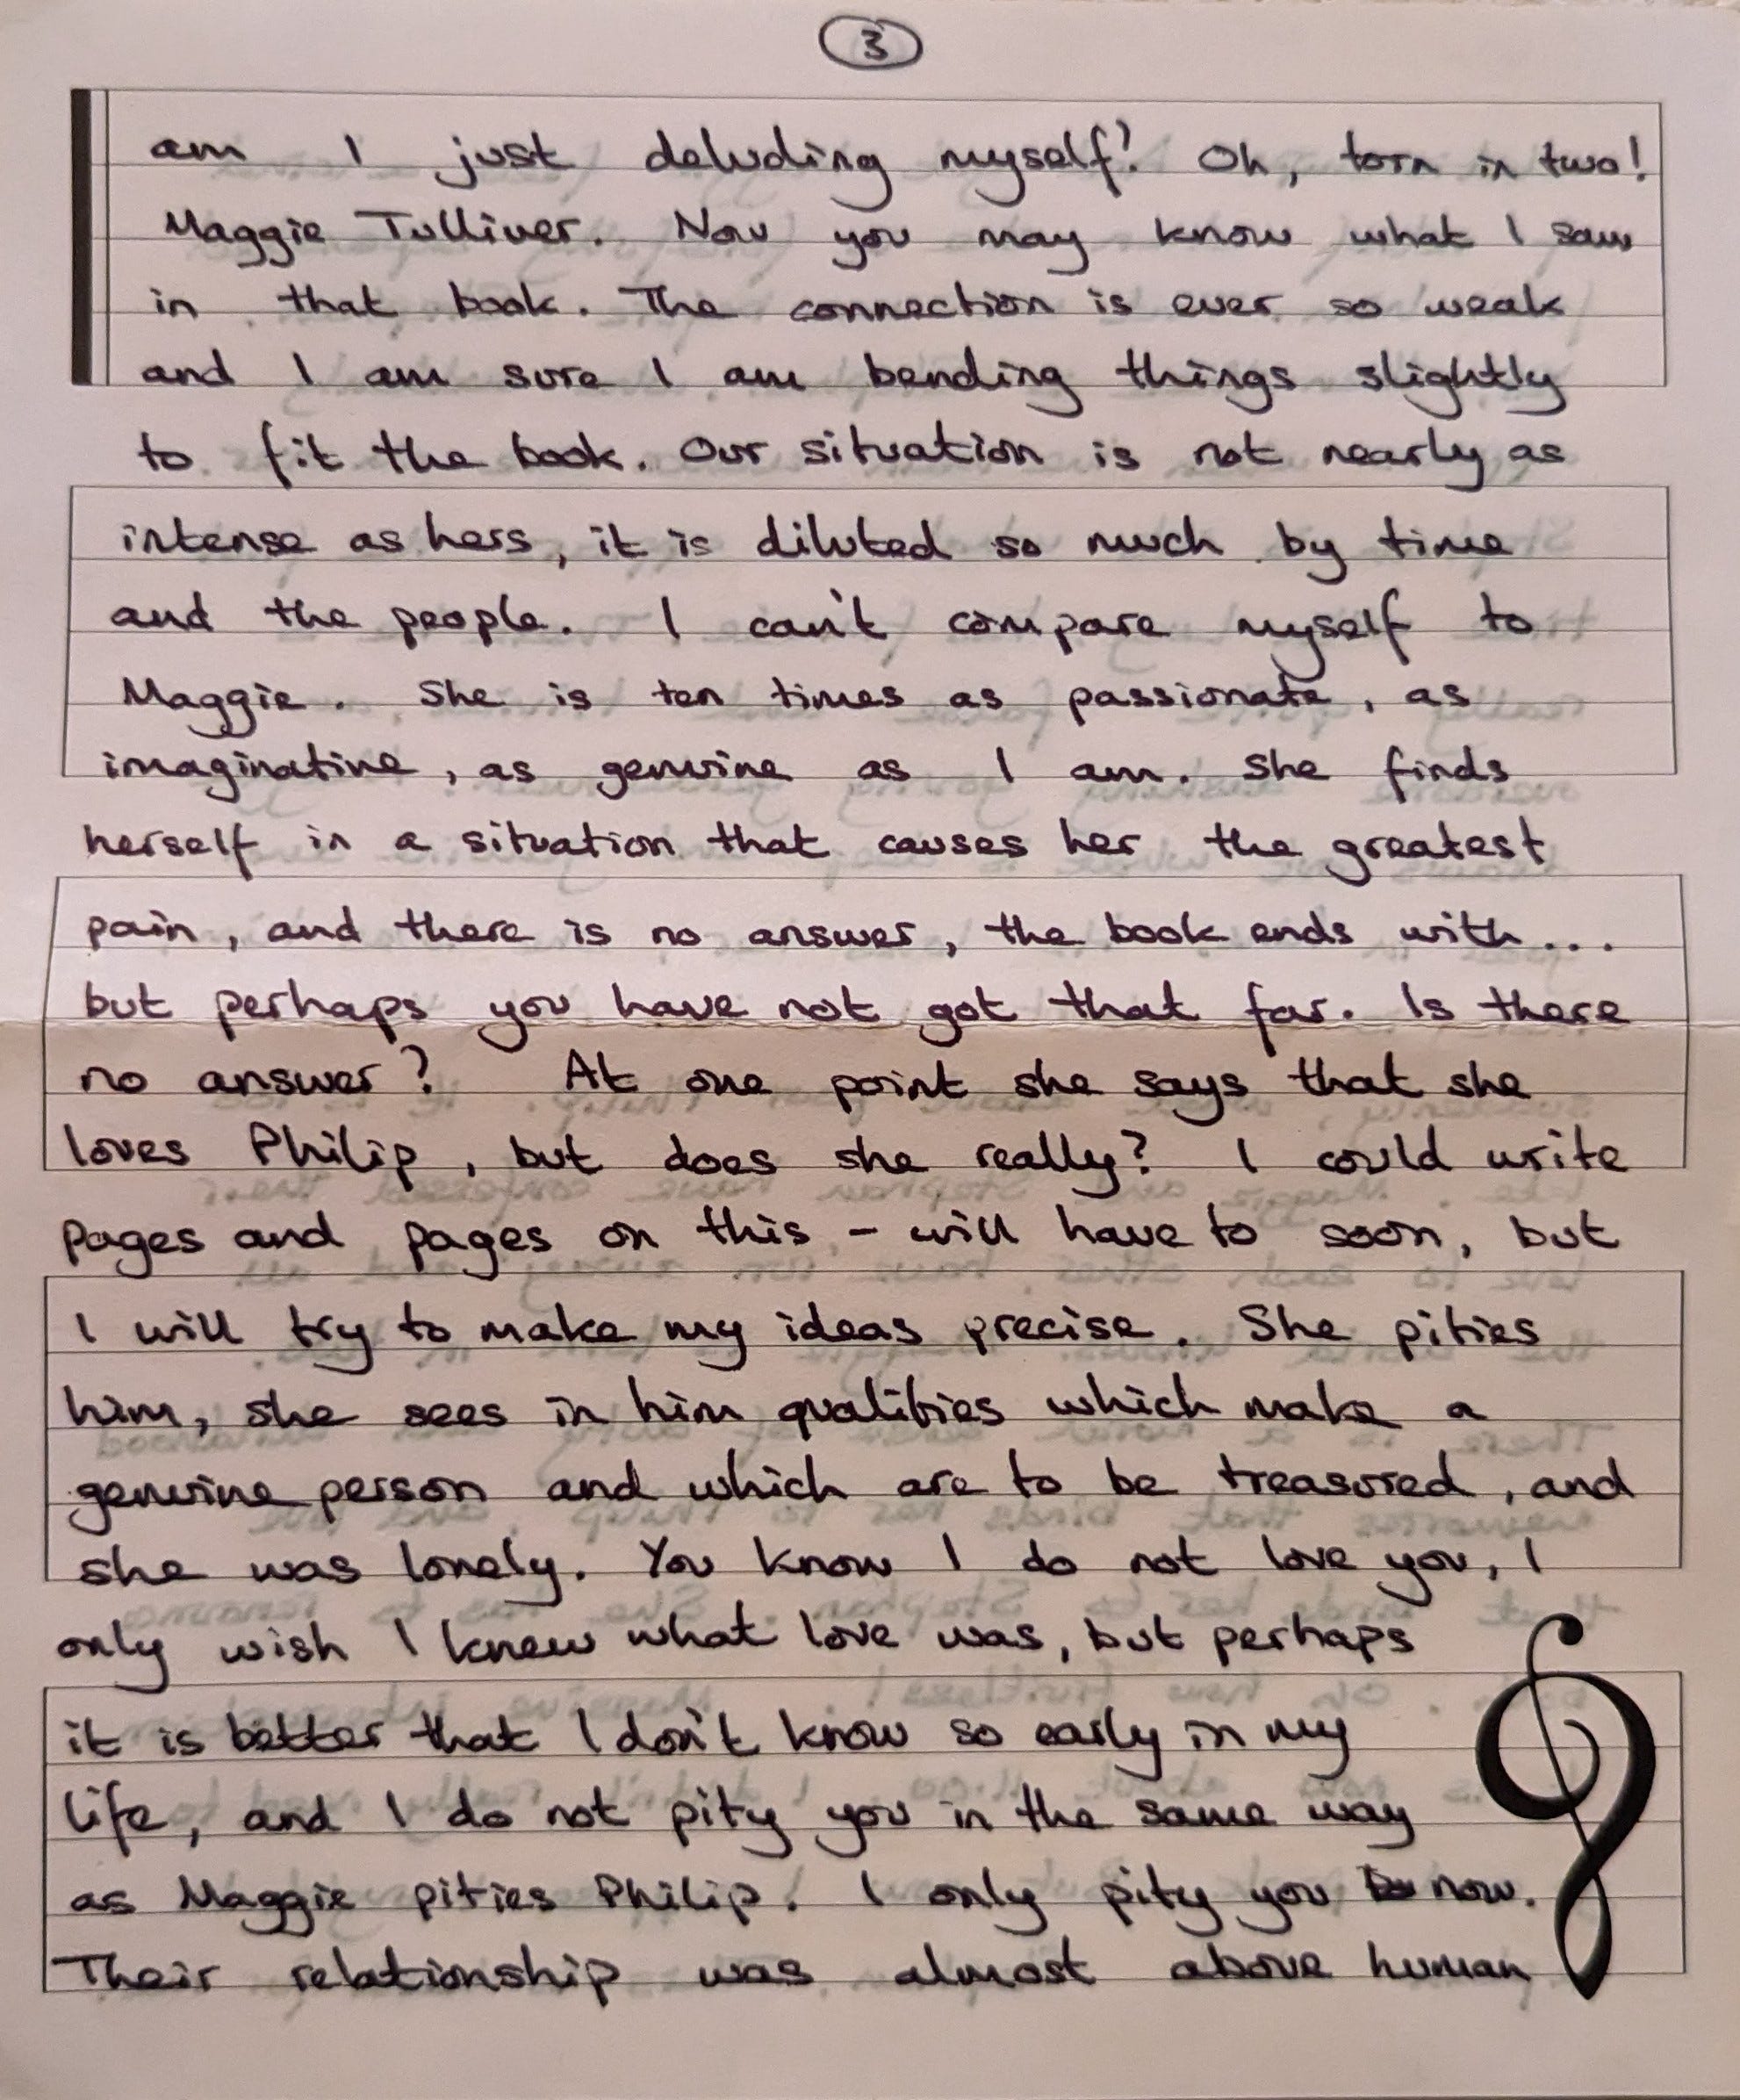 3
am I just deluding myself? Oh, torn in two!
Maggie Tulliver. Now you may know what I saw
in that book. The connection is ever so weak
and I am sure I am bending things slightly
to fit the book. Our situation is not nearly as
intense as hers, it is diluted so much by time
and the people. I can't compare myself to
Maggie. She is ten times as passionate, as
imaginative, as genuine as I am. She finds
herself in a situation that causes her the greatest
pain, and there is no answer, the book ends with...
but perhaps you have not got that far. Is there
no answer? At one point she says that she
loves Philip, but does she really? I could write
pages and pages on this - will have to soon, but
I will try to make my ideas precise. She pities
him, she sees in him qualities which make a
genuine person and which are to be treasured, and
she was lonely. You know I do not love you, I
only wish I knew what love was, but perhaps
it is better that I don't know so early in my
life, and I do not pity you in the same way
as Maggie pities Philip. I only pity you now.
Their relationship was almost above human